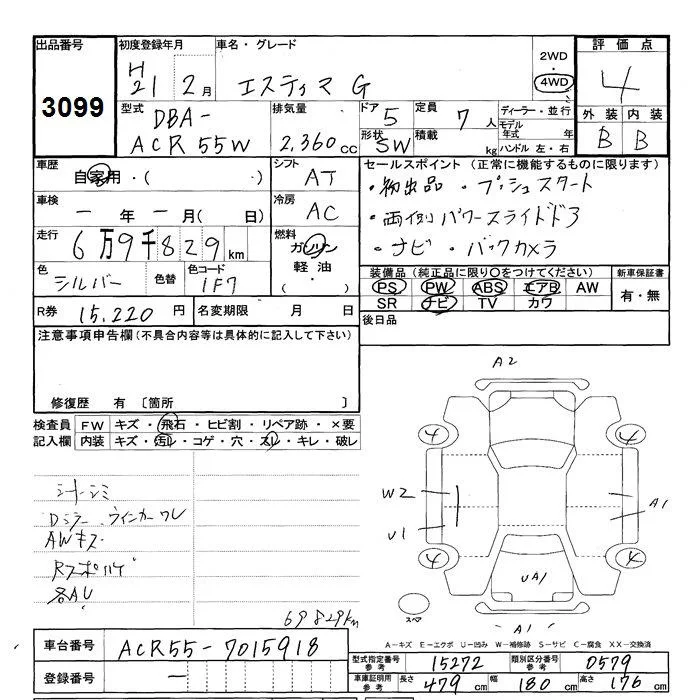 出品番号 初度登録年月 車名・グレード 2WD 評価点
3099 H21 2月 エスティマ G ・ 4WD 4
型式 排気量 ドア 定員 ディーラー・並行 外装 内装
DBA- ACR55W 2,360cc 5 7人 モデル 年式 年 B B
形状 SW 積載 kg ハンドル 左・右
車歴 自家用・( ・) シフト AT セールスポイント (正常に機能するものに限ります)
・初出品 ・プッシュスタート
車検 ー年ー月( 日) 冷房 AC ・両側パワースライドドア
走行 6万9千829km 燃料 ガソリン ・ナビ ・バックカメラ
軽油・
( )
色 シルバー 色替 色コード 1F7 装備品 (純正品に限り○をつけてください) 新車保証書
PS PW ABS エアB AW 有・無
SR ナビ TV カワ
R券 15,220円 名変期限 月 日 後日品
注意事項申告欄 (不具合内容等は具体的に記入して下さい)
修復歴 有 〔箇所 〕
検査員 FW キズ・飛石・ヒビ割・リペア跡・×要
記入欄 内装 キズ・汚レ・コゲ・穴・スレ・キレ・破レ
シートシミ
Dミラーウインカーワレ
AWキズ
各AU
69829km
A2
4 4
W2
A1
U1
4 X
UA1
スペア
A1
A-キズ E-エクボ U-凹み W-補修跡 S-サビ C-腐食 XX-交換済
車台番号 ACR55-7015918
型式指定番号 参考 15272 類別区分番号 参考 0579
登録番号 ー
車庫証明用 参考 長さ 479cm 幅 180cm 高さ 176cm